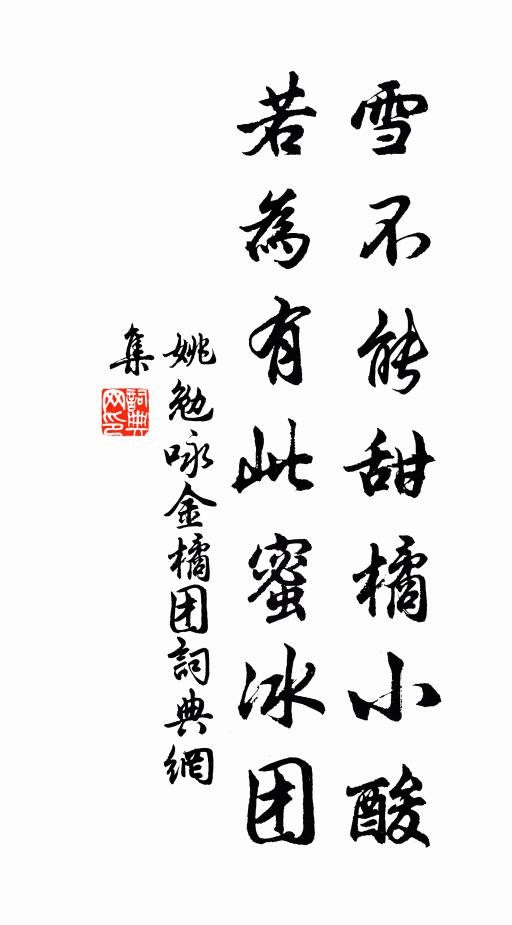 雪不能甜橘小酸
若為有此蜜冰团
姚勉咏金橘团詞典網
集
詞典
网印